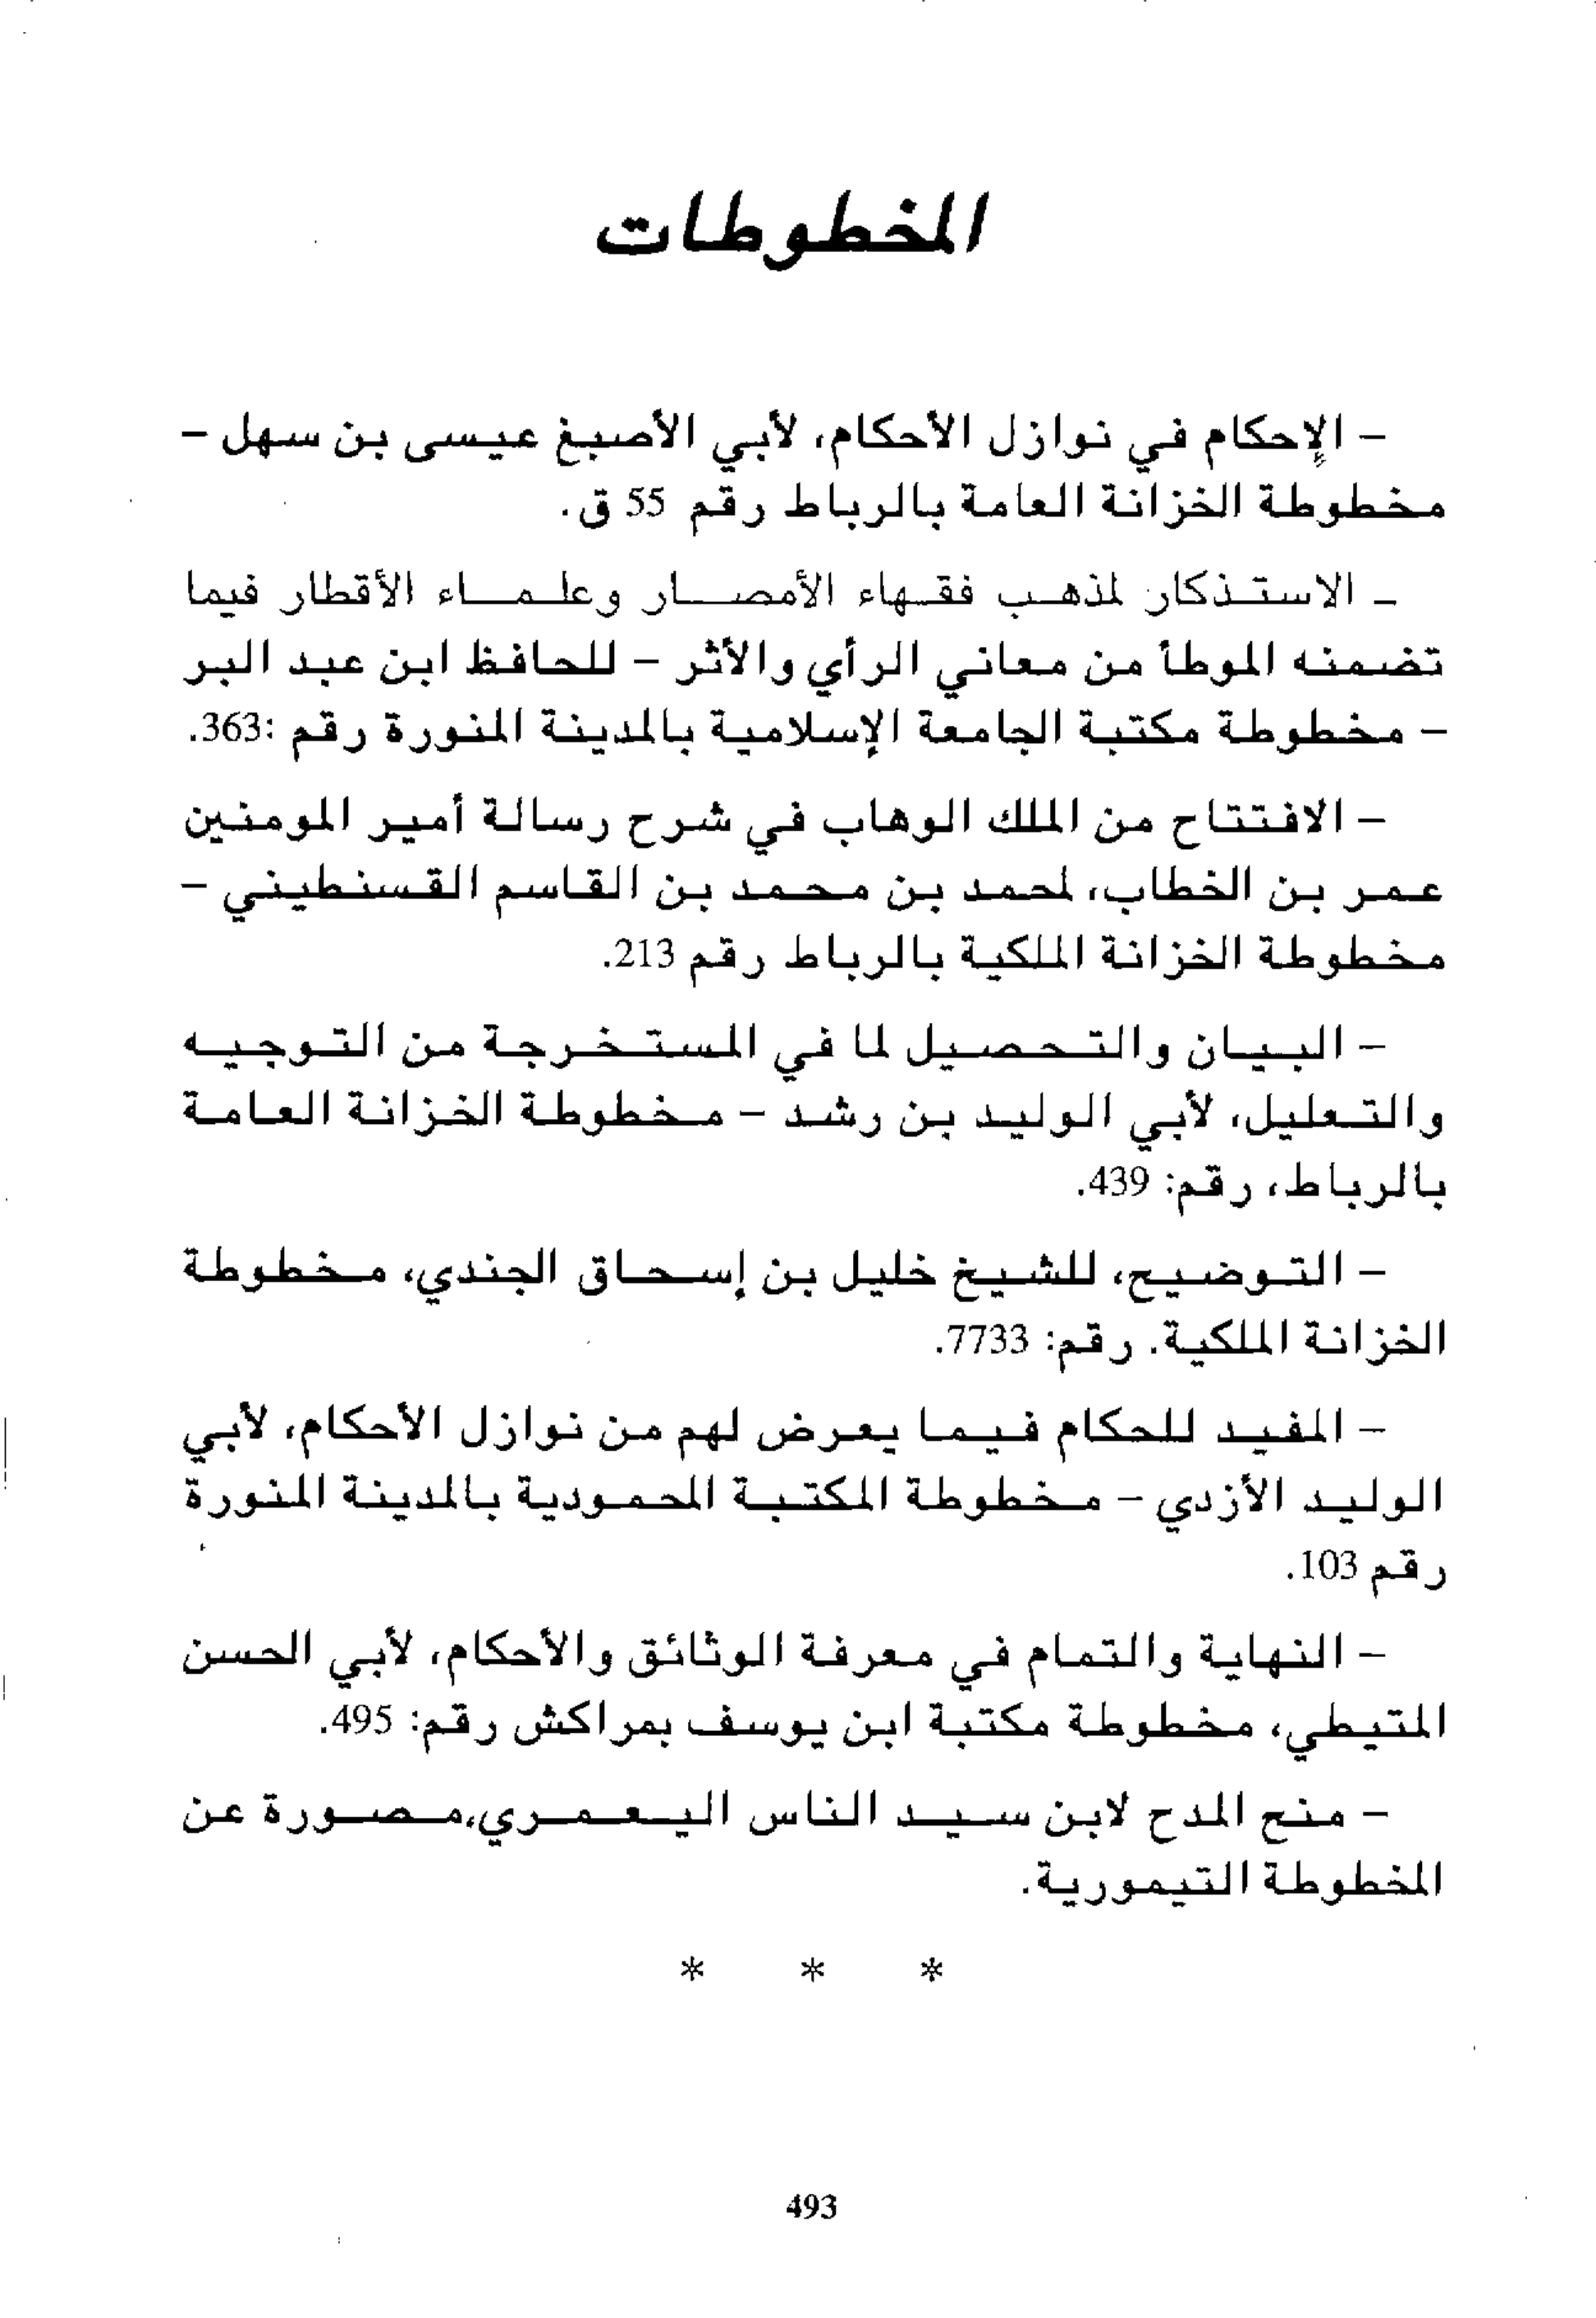 المخطوطات
– الإحكام في نوازل الأحكام، لأبي الأصبغ عيسى بن سهل –
مخطوطة الخزانة العامة بالرباط رقم 55 ق.
ـ الاستذكار لمذهب فقهاء الأمصار وعلماء الأقطار فيما
تضمنه الموطأ من معاني الرأي والأثر – للحافظ ابن عبد البر
– مخطوطة مكتبة الجامعة الإسلامية بالمدينة المنورة رقم :363.
– الافتتاح من الملك الوهاب في شرح رسالة أمير المومنين
عمر بن الخطاب، لمحمد بن محمد بن القاسم القسنطيني –
مخطوطة الخزانة الملكية بالرباط رقم 213.
– البيان والتحصيل لما في المستخرجة من التوجيه
والتعليل، لأبي الوليد بن رشد – مخطوطة الخزانة العامة
بالرباط، رقم: 439.
– التوضيح، للشيخ خليل بن إسحاق الجندي، مخطوطة
الخزانة الملكية. رقم: 7733.
– المفيد للحكام فيما يعرض لهم من نوازل الأحكام، لأبي
الوليد الأزدي – مخطوطة المكتبة المحمودية بالمدينة المنورة
رقم 103.
– النهاية والتمام في معرفة الوثائق والأحكام، لأبي الحسن
المتيطي، مخطوطة مكتبة ابن يوسف بمراكش رقم: 495.
– منح المدح لابن سيد الناس اليعمري،مصورة عن
المخطوطة التيمورية.
* * *
493